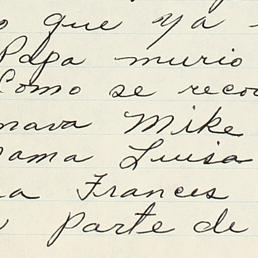 o que ya
Papa murio
Como se reco
mava Mike
ama Luisa
a Frances
Parte de